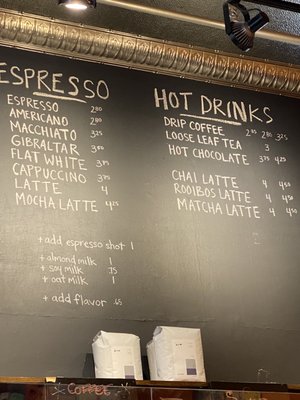 ESPRESSO
ESPRESSO 2.80
AMERICANO 2.80
MACCHIATO 3.25
GIBRALTAR 3.50
FLAT WHITE 3.75
CAPPUCCINO 3.75
LATTE 4
MOCHA LATTE 4.25
+ add espresso shot 1
+ almond milk 1
+ soy milk .75
+ oat milk 1
+ add flavor .65
HOT DRINKS
DRIP COFFEE 2.05 2.80 3.25
LOOSE LEAF TEA 3
HOT CHOCOLATE 3.75 4.25
CHAI LATTE 4 4.50
ROOIBOS LATTE 4 4.50
MATCHA LATTE 4 4.50
COFFEE